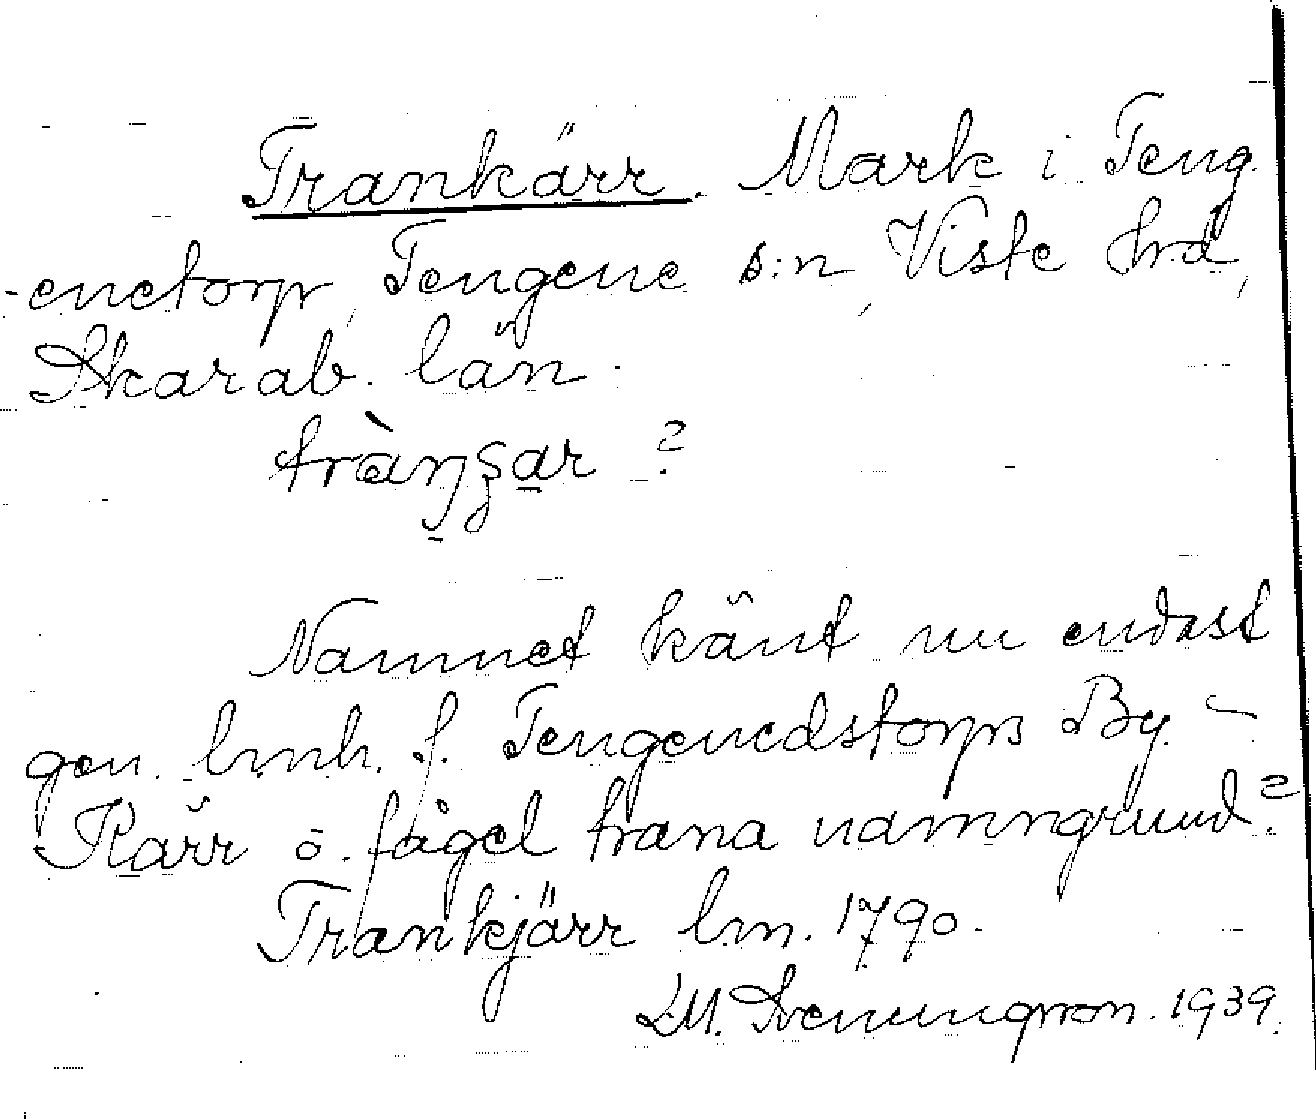 Trankärr. Mark i Teng
-enetorp, Tengene s:n, Viste hrd,
Skarab. län.
?
Namnet känt nu endast
gen. lmh. f. Tengenedstorps By. –
Kärr o. fågel trana namngrund?
Trankjärr lm. 1790.
LM. Svenungsson. 1939.